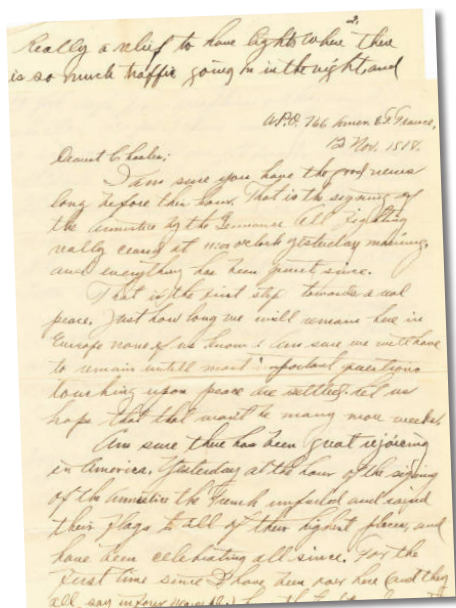 2.
Really a relief to have lights where there
is so much traffic going on in the night, and
A.P.O. 766 Amer. E.F. France,
12 Nov. 1918.
Dearest Charles:
I am sure you have the good news
long before this hour. That is the signing of
the armistice by the Germans. All fighting
really ceased at 11:00 o'clock yesterday morning,
and everything has been quiet since.
That is the first step towards a real
peace. Just how long we will remain here in
Europe none of us know. I am sure we will have
to remain untill most important questions
touching upon peace are settled. Let us
hope that that won't be many more weeks.
Am sure there has been great rejoicing
in America. Yesterday at the hour of the signing
of the armistice the French unfurled and raised
their flags to all of their highest places, and
have been celebrating all since. For the
first time since I have been over here (and they
all say in four